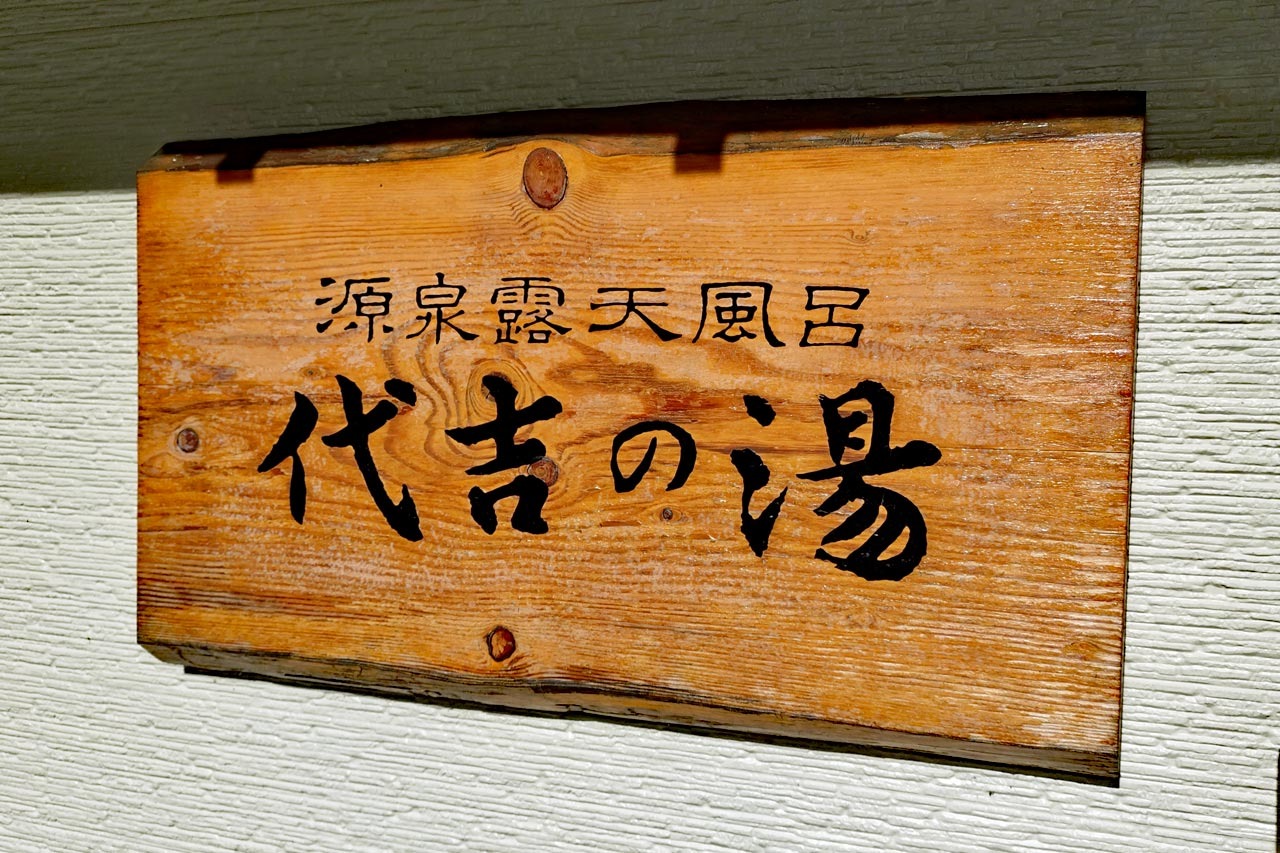 源泉露天風呂
代吉の湯